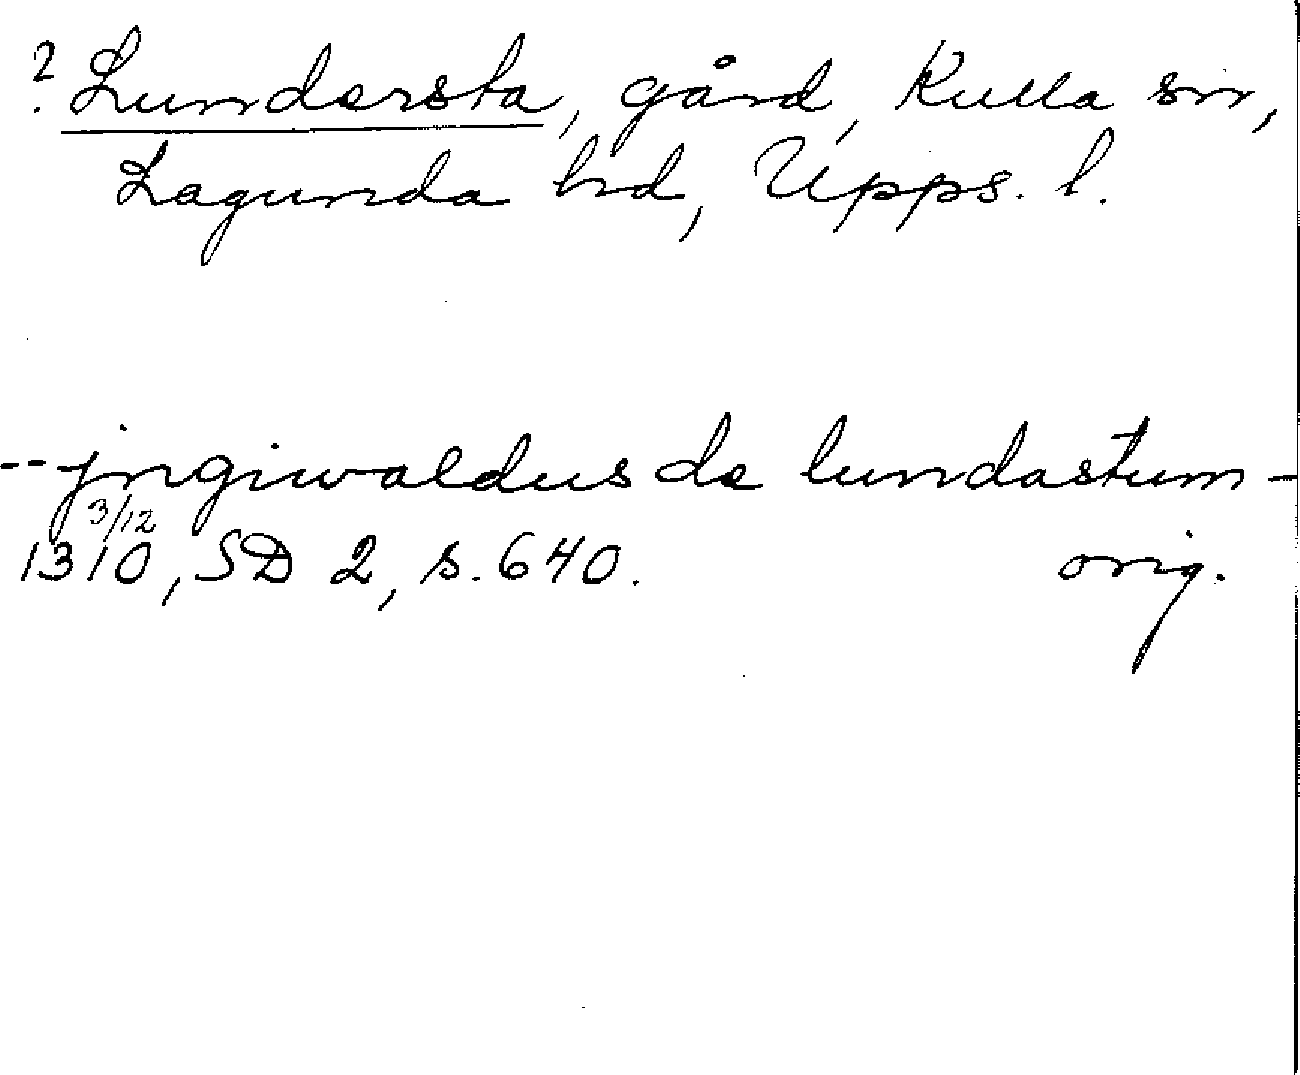 ? Lundersta, gård, Kulla sn,
Lagunda hd, Upps. l.
-- jngiwaldus de lundastum -
3/12
1310, SD 2, s. 640. orig.